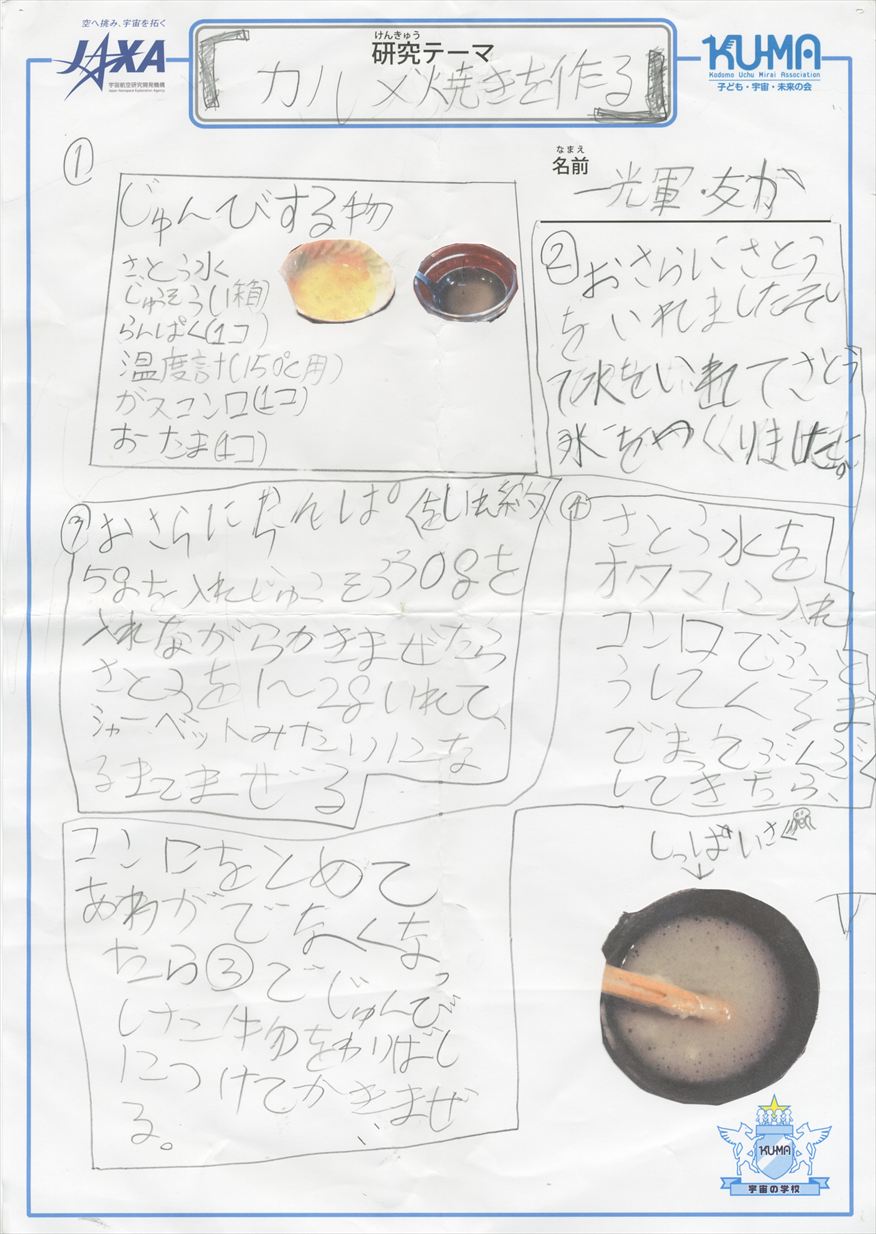 空へ挑み、宇宙を拓く
JAXA
宇宙航空研究開発機構
Japan Aerospace Exploration Agency
けんきゅう
研究テーマ
『カルメ焼きを作る』
KU-MA
Kodomo Uchu Mirai Association
子ども・宇宙・未来の会
なまえ
名前
光軍・友が
①
じゅんびする物
さとう水
じゅうそう(箱)
らんぱく(1コ)
温度計(150℃用)
ガスコンロ(1コ)
おたま(1コ)
②
おさらにさとう
をいれましたそし
て水をいれてさとう
水をつくりました。
③
おさらにらんぱくをしゅ約
5gを入れじゅうそう30gを
入れながらかきまぜたら
さとうを1〜2gいれて、
シャーベットみたいにな
るまでまぜる
④
さとう水を
オタマに入れ
コンロでふっと
うしてくるま
でまってぶくぶく
してきたら、
コンロをとめて
あわがでなくなっ
たら③でじゅんび
した物をわりばし
につけてかきまぜ
る。
しっぱいさく
↓
KU-MA
宇宙の学校